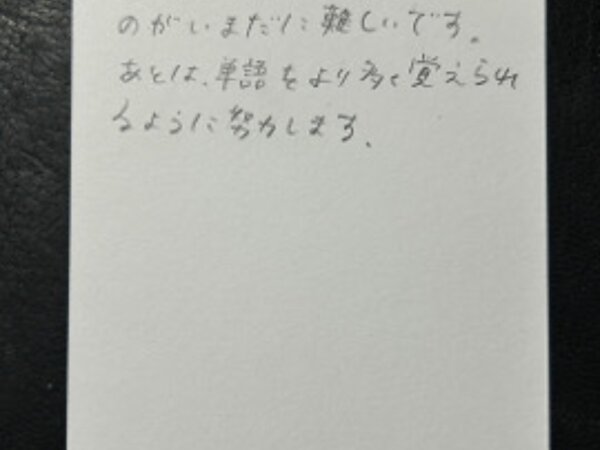 のがいまだに難しいです。
あとは、単語をより多く覚えられ
るように努力します。